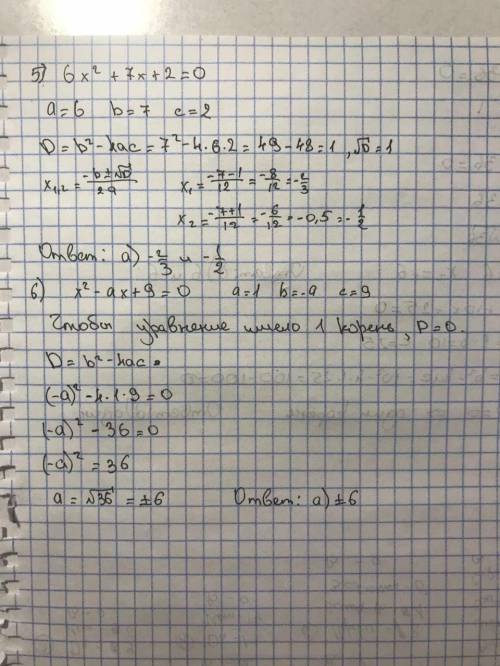 5) 6x² + 7x + 2 = 0
a = 6 b = 7 c = 2
D = b² - 4ac = 7² - 4·6·2 = 49 - 48 = 1, √D = 1
x₁,₂ = (-b±√D)/2a x₁ = (-7-1)/12 = -8/12 = -2/3
x₂ = (-7+1)/12 = -6/12 = -0,5 = -1/2
Ответ: а) -2/3 и -1/2
6) x² - ax + 9 = 0 a = 1 b = -a c = 9
Чтобы уравнение имело 1 корень, D = 0.
D = b² - 4ac
(-a)² - 4·1·9 = 0
(-a)² - 36 = 0
(-a)² = 36
a = √36 = ±6 Ответ: а) ±6